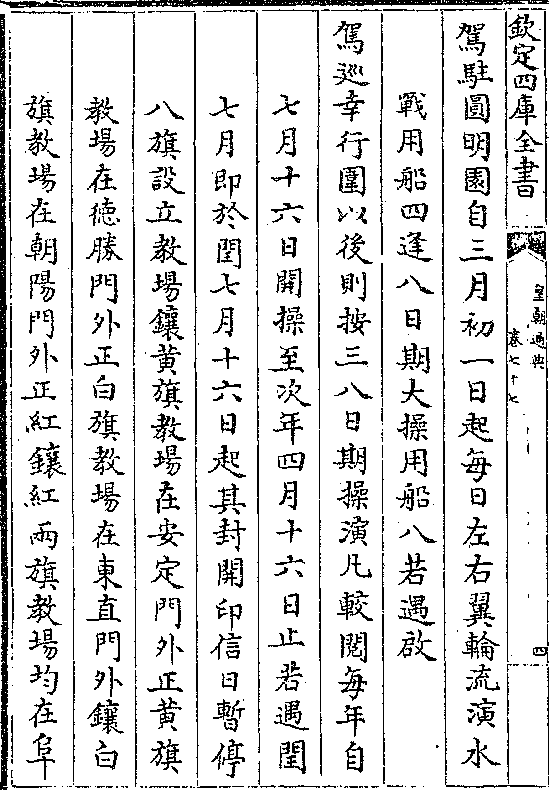 欽定四庫全書
皇朝通典
卷七十七
四
駕駐圓明園自三月初一日起每日左右翼輪流演水
戰用船四逢八日期大操用船八若遇啟
駕巡幸行圍以後則按三八日期操演凡較閱每年自
七月十六日開操至次年四月十六日止若遇閏
七月即於閏七月十六日起其封開印信日暫停
八旗設立教場鑲黄旗教場在安定門外正黄旗
教場在德勝門外正白旗教場在東直門外鑲白
旗教場在朝陽門外正紅鑲紅兩旗教場均在阜